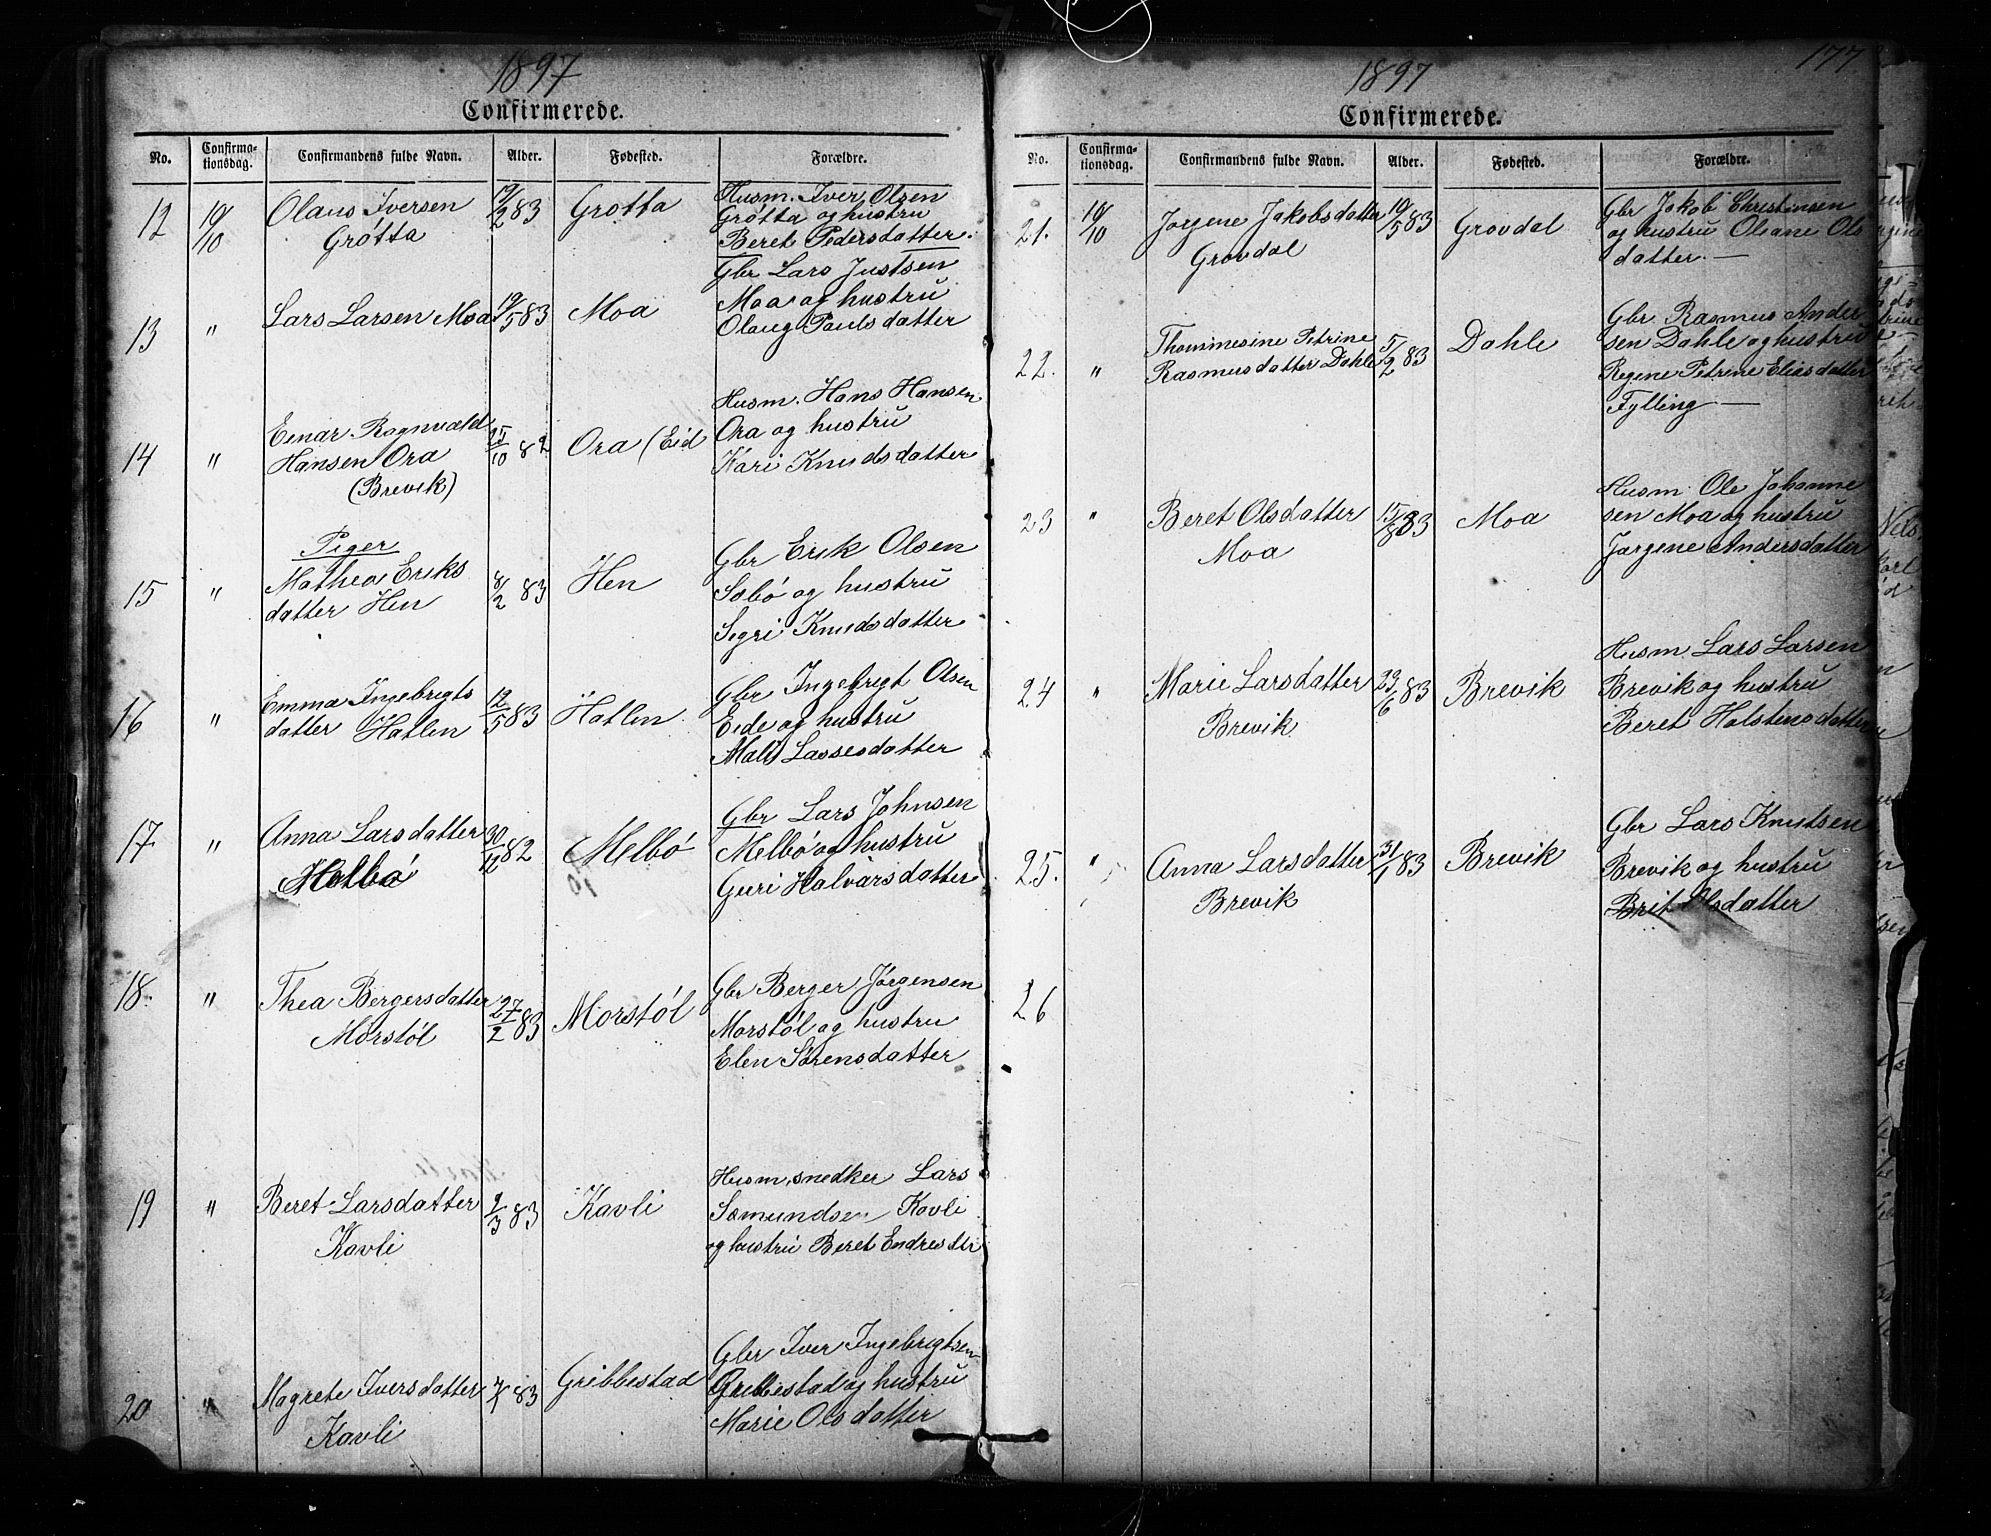 1897
Confirmerede.
No. Confirma-tionsdag. Confirmandens fulde Navn. Alder. Fødested. Forældre.
12 10/10 Olaus Iversen 19/2 83 Grøtta Husm. Iver Olsen
Grøtta Grøtta og hustru
Beret Pedersdatter.
13 " Lars Larsen Moa 19/5 83 Moa Gbr Lars Justsen
Moa og hustru
Olaug Paulsdatter
14 " Einar Ragnvald 25/10 82 Ora (Eid Husm. Hans Hansen
Hansen Ora Ora og hustru
(Brevik) Kari Knudsdatter
Piger
15 " Mathea Eriks 8/2 83 Hen Gbr Erik Olsen
datter Hen Sæbø og hustru
Segri Knudsdatter
16 " Emma Ingebrigts 12/5 83 Hatlen Gbr Ingebrigt Olsen
datter Hatlen Eide og hustru
Mali Lassesdatter
17 " Anna Larsdatter 30/12 82 Melbø Gbr Lars Johnsen
Melbø Melbø og hustru
Guri Halvarsdatter
18. " Thea Bergersdatter 27/2 83 Morstøl Gbr Berger Jørgensen
Morstøl Morstøl og hustru
Elen Sørensdatter
19 " Beret Larsdatter 9/3 83 Kavli Husm, snedker Lars
Kavli Sæmundsen Kavli
og hustru Beret Endresdtr
20 " Magrete Iversdatter 83 Gribbestad Gbr Iver Ingebrigtsen
Kavli Gribbestad og hustru
Marie Olsdatter
1897
177
Confirmerede.
No. Confirma-tionsdag. Confirmandens fulde Navn. Alder. Fødested. Forældre.
21. 10/10 Jørgene Jakobsdatter 10/5 83 Grovdal Gbr Jakob Christensen
Grovdal og hustru Oliane Ols
datter. —
22. " Thommesine Petrine 5/2 83 Dahle Gbr Rasmus Ander
Rasmusdatter Dahle sen Dahle og hustru
Regine Petrine Eliasdatter
Fylling —
23 " Beret Olsdatter 15/8 83 Moa Husm. Ole Johanne
Moa sen Moa og hustru
Jørgene Andersdatter
24 " Marie Larsdatter 23/6 83 Brevik Husm. Lars Larsen
Brevik Brevik og hustru
Beret Halstensdatter
25. " Anna Larsdatter 31/1 83 Brevik Gbr Lars Knutsen
Brevik Brevik og hustru
Brit Olsdatter
26